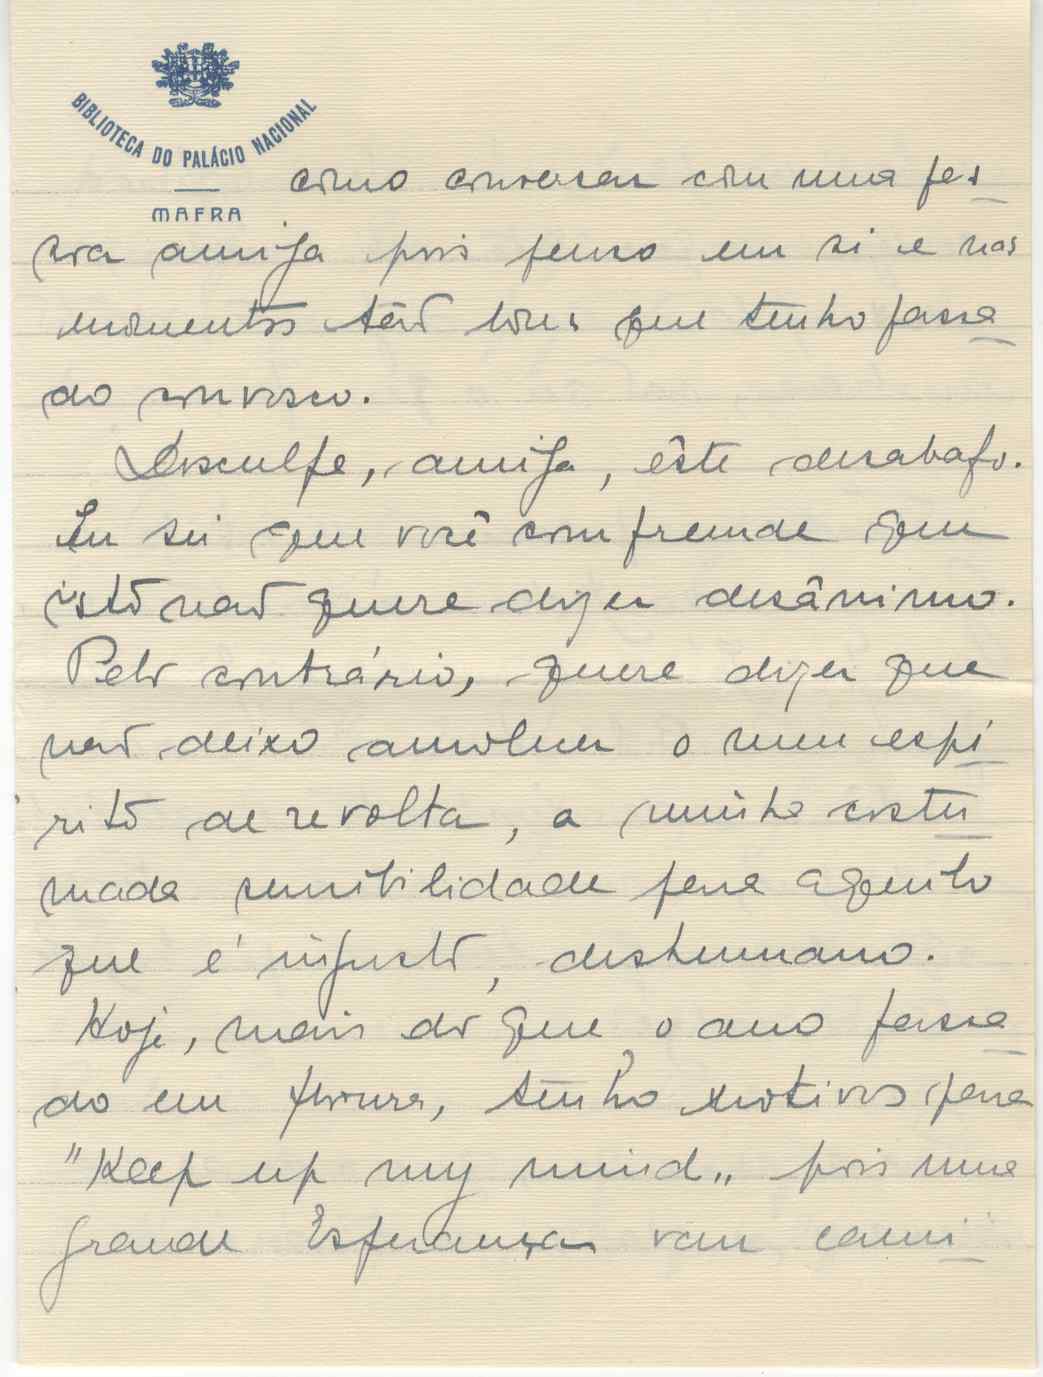 BIBLIOTECA DO PALÁCIO NACIONAL
MAFRA
como conversar com uma pes
soa amiga pois penso em si e nos
momentos tão bons que tenho passa
do convosco.
Desculpe, amiga, êste desabafo.
Eu sei que você compreende que
isto não quere dizer desânimo.
Pelo contrário, quere dizer que
não deixo amolecer o meu espí
rito de revolta, a minha costu
mada sensibilidade para aquilo
que é injusto, deshumano.
Hoje, mais do que o ano passa
do em, tenho motivos para
"Keep up my mind" pois uma
grande Esperança vem cami